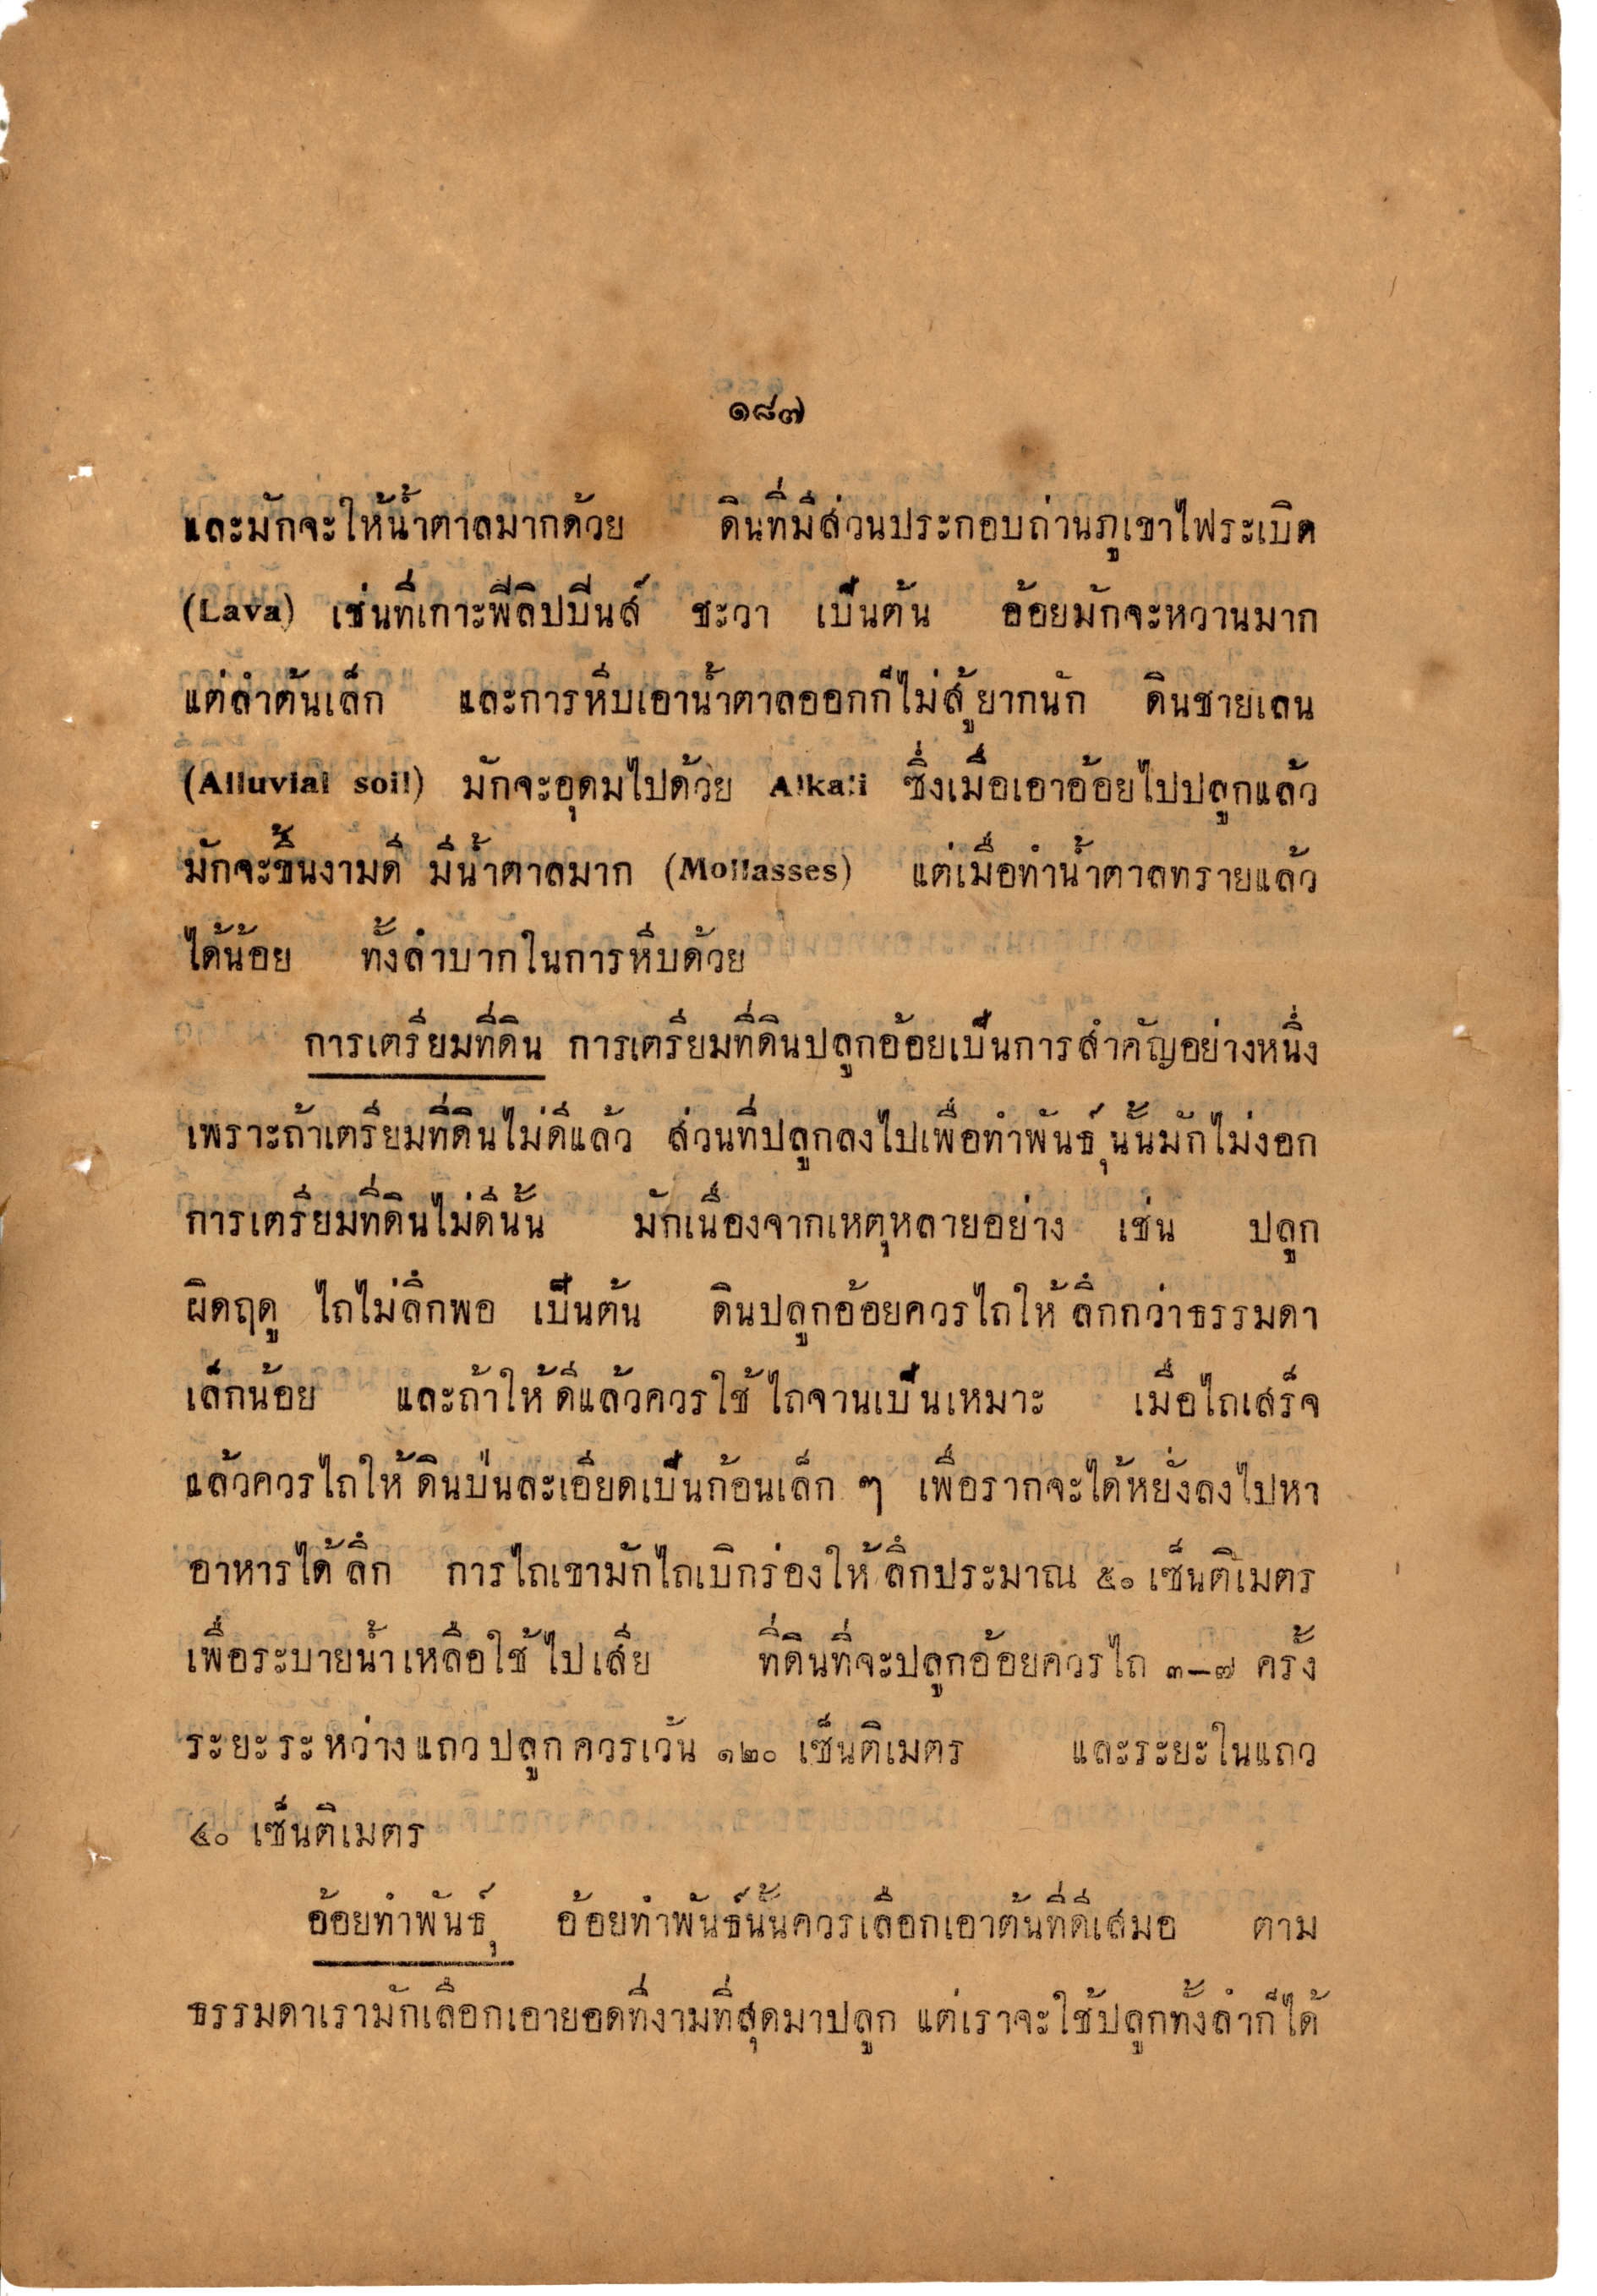 ๑๘๗
และมักจะให้น้ำตาลมากด้วย ดินที่มีส่วนประกอบถ่านภูเขาไฟระเบิด
(Lava) เช่นที่เกาะฟีลิปปีนส์ ชะวา เป็นต้น อ้อยมักจะหวานมาก
แต่ลำต้นเล็ก และการหีบเอาน้ำตาลออกก็ไม่สู้ยากนัก ดินชายเลน
(Alluvial soil) มักจะอุดมไปด้วย Alkali ซึ่งเมื่อเอาอ้อยไปปลูกแล้ว
มักจะขึ้นงามดี มีน้ำตาลมาก (Mollasses) แต่เมื่อทำน้ำตาลทรายแล้ว
ได้น้อย ทั้งลำบากในการหีบด้วย
การเตรียมที่ดิน การเตรียมที่ดินปลูกอ้อยเป็นการสำคัญอย่างหนึ่ง
เพราะถ้าเตรียมที่ดินไม่ดีแล้ว ส่วนที่ปลูกลงไปเพื่อทำพันธุ์นั้นมักไม่งอก
การเตรียมที่ดินไม่ดีนั้น มักเนื่องจากเหตุหลายอย่าง เช่น ปลูก
ผิดฤดู ไถไม่ลึกพอ เป็นต้น ดินปลูกอ้อยควรไถให้ลึกกว่าธรรมดา
เล็กน้อย และถ้าให้ดีแล้วควรใช้ไถจานเป็นเหมาะ เมื่อไถเสร็จ
แล้วควรไถให้ดินป่นละเอียดเป็นก้อนเล็ก ๆ เพื่อรากจะได้หยั่งลงไปหา
อาหารได้ลึก การไถเขามักไถเบิกร่องให้ลึกประมาณ ๕๐ เซ็นติเมตร
เพื่อระบายน้ำเหลือใช้ไปเสีย ที่ดินที่จะปลูกอ้อยควรไถ ๓—๗ ครั้ง
ระยะระหว่างแถวปลูกควรเว้น ๑๒๐ เซ็นติเมตร และระยะในแถว
๔๐ เซ็นติเมตร
อ้อยทำพันธุ์ อ้อยทำพันธ์นั้นควรเลือกเอาต้นที่ดีเสมอ ตาม
ธรรมดาเรามักเลือกเอายอดที่งามที่สุดมาปลูก แต่เราจะใช้ปลูกทั้งลำก็ได้